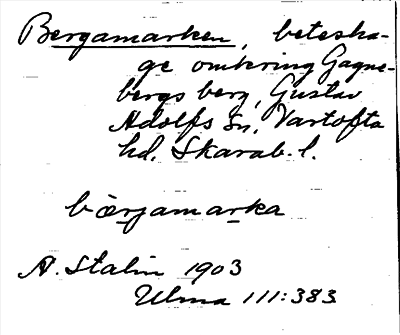 Bergamarken, betesha-
ge omkring Gagne-
bergs berg, Gustav
Adolfs sn, Vartofta
hd. Skarab. l.
bærjamarka
A. Stalin 1903
Ulma 111:383